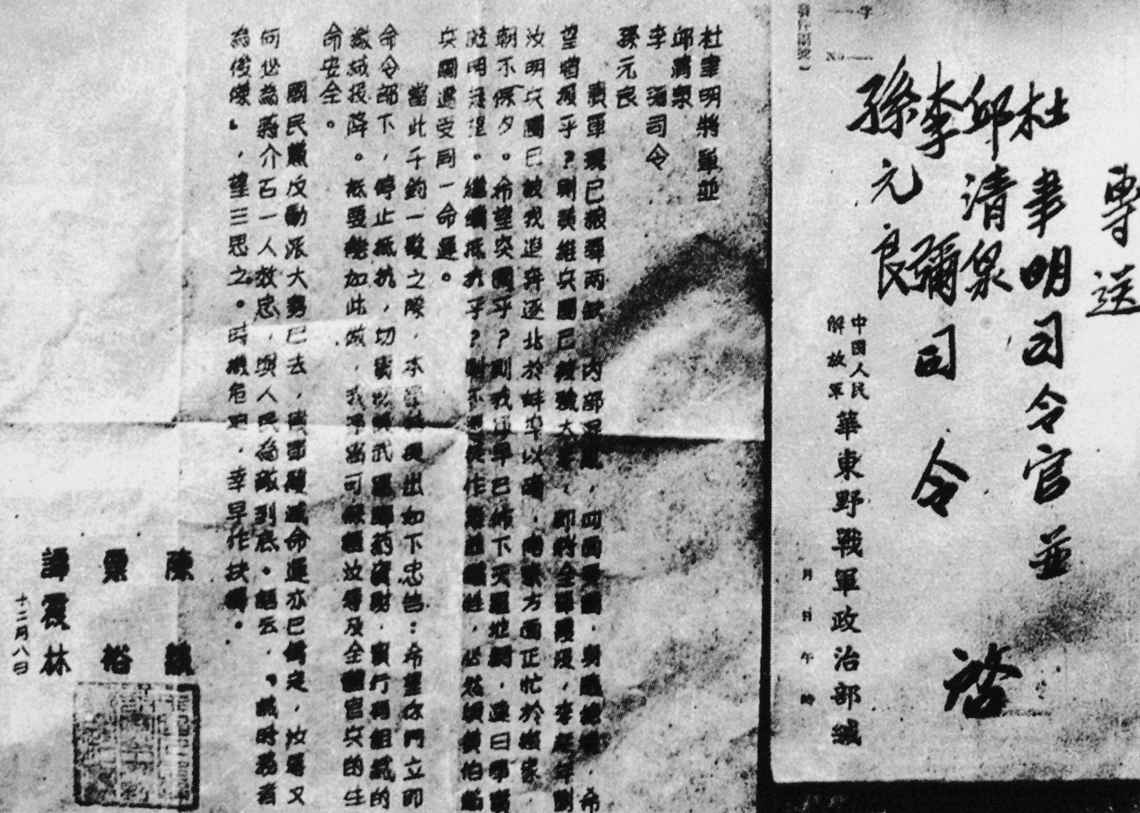 專送
杜聿明司令官並
邱清泉
李彌司令
孫元良
啓
中國人民
解放軍
華東野戰軍政治部緘
月 日 午 時
字
No
杜聿明將軍並
邱清泉
李彌司令
孫元良
貴軍現已糧彈兩缺,內部混亂,四面受圍,身臨絕境。希
望增援乎?則黃維兵團已被殲大半,即將全部覆沒,李延年劉
汝明兵團已被我迫奔逐北於蚌埠以南,南京方面正忙於搬家,
朝不保夕。希望突圍乎?則我軍早已佈下天羅地網,連日事實
證明無望。繼續抵抗乎?則不過徒作無謂犧牲,必然與黃伯韜
兵團遭受同一命運。
當此千鈞一髮之際,本軍特提出如下忠告:希望你們立即
命令部下,停止抵抗,切實保護武器彈藥資財,實行有組織的
繳械投降。祇要能如此做,我軍當可保證汝等及全體官兵的生
命安全。
國民黨反動派大勢已去,貴軍覆滅命運亦已肯定,汝等又
何必為蔣介石一人效忠,與人民為敵到底。語云,「識時務者
為俊傑」,望三思之。時機危迫,幸早作抉擇。
陳毅
粟裕
譚震林
十二月八日